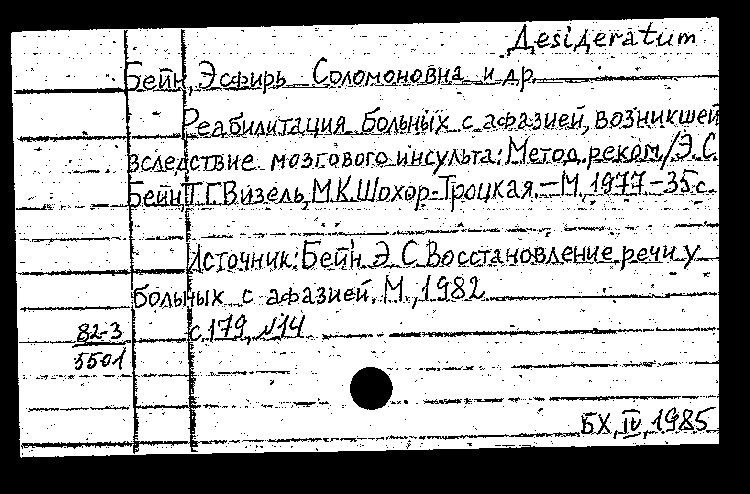 Дesiдeratum
Бейн, Эсфирь Соломоновна и др.
Реабилитация больных с афазией, возникшей
вследствие мозгового инсульта: Метод. реком./Э.С.
Бейн, Т.Г. Визель, М.К. Шохор-Троцкая. — М., 1977 — 35 с.
Источник: Бейн Э.С. Восстановление речи у
больных с афазией. М., 1982
с. 179, №14
82-3
5501
БХ, IV, 1985